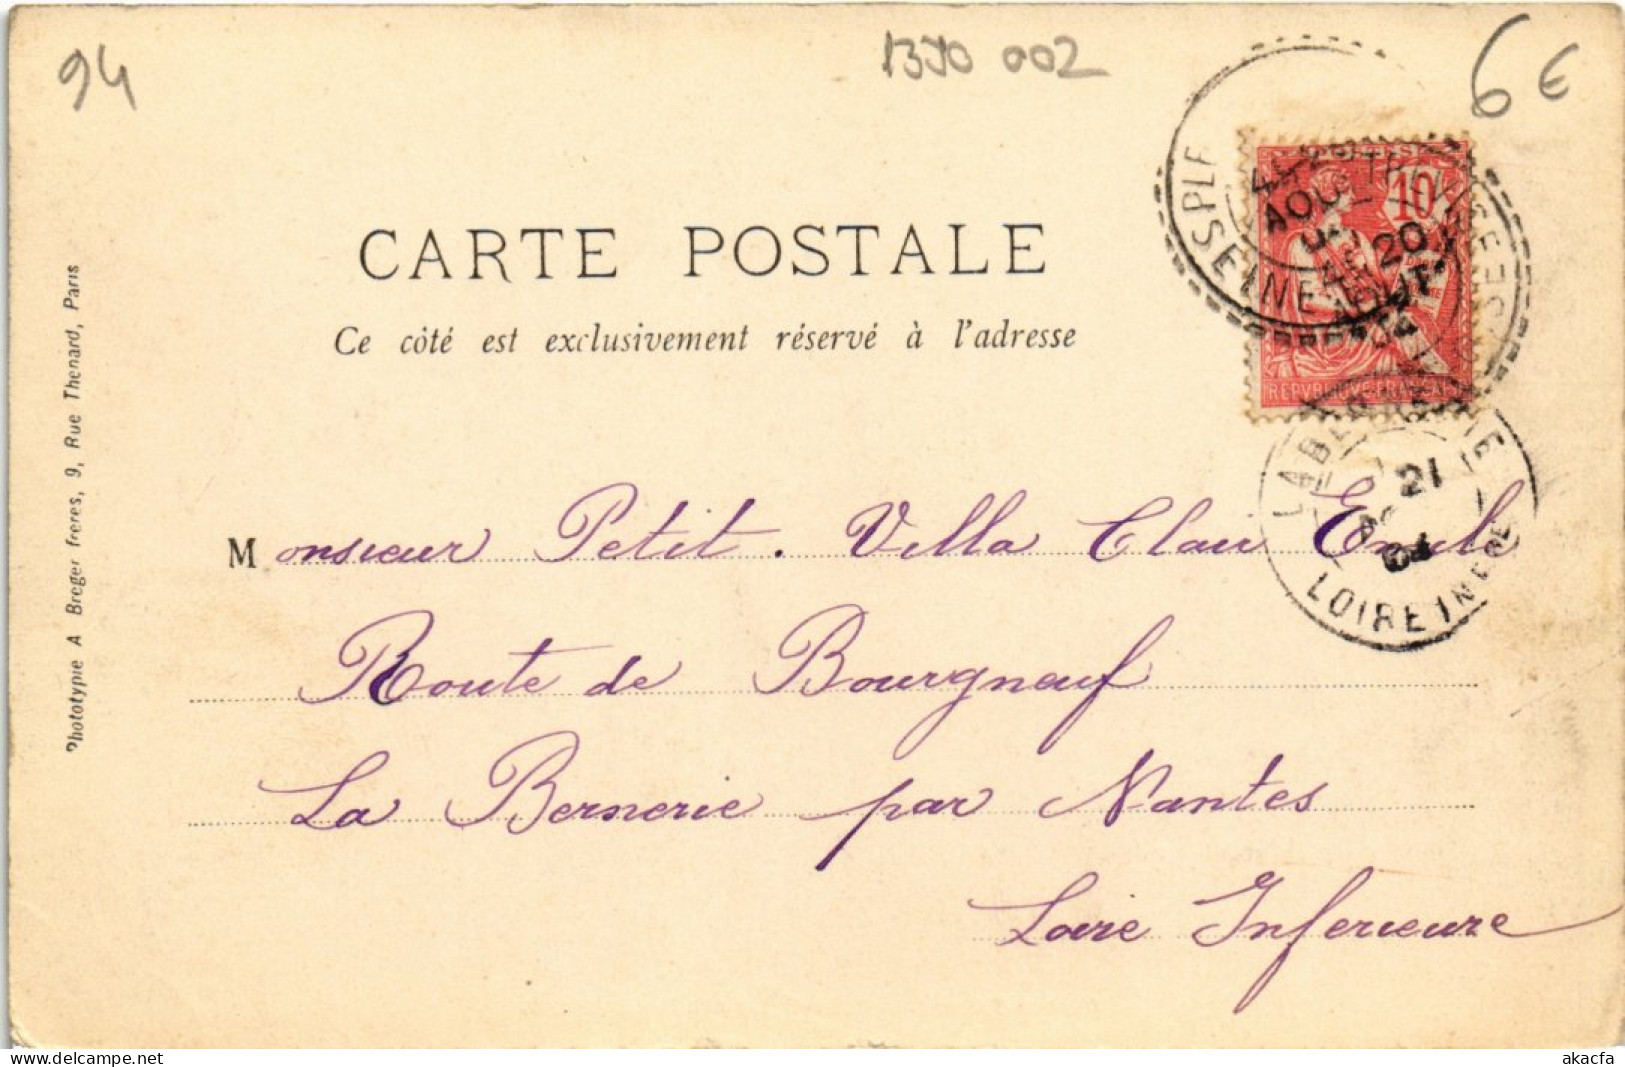 94
1350 002
6€
CARTE POSTALE
Ce côté est exclusivement réservé à l'adresse
10
REPVBLIQVE FRANÇAISE
SEINE
20
AOUT
04
21
04
LOIRE INFRE
Monsieur Petit. Villa Clair Emile
Route de Bourgneuf
La Bernerie par Nantes
Loire Inferieure
Phototypie A Breger freres, 9, Rue Thenard, Paris
akacfa
delcampe.net